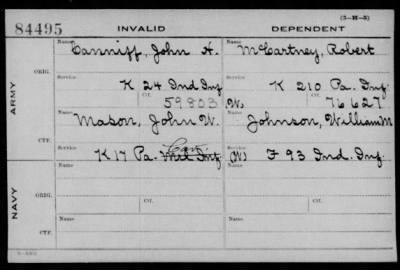 (3-H-5)
84495 INVALID DEPENDENT
Name Canniff, John A. Name McCartney, Robert
ORIG.
Service K 24 Ind Inf Service K 210 Pa. Inf.
Ctf. 59803 Ctf. 76627
ARMY
Name Mason, John W. (W.) Name Johnson, William M
CTF.
Service K 17 Pa. Mil Inf Cav. Service (W) F 93 Ind. Inf.
Name Name
ORIG.
Service Ctf. Service Ctf.
NAVY
Name Name
CTF.